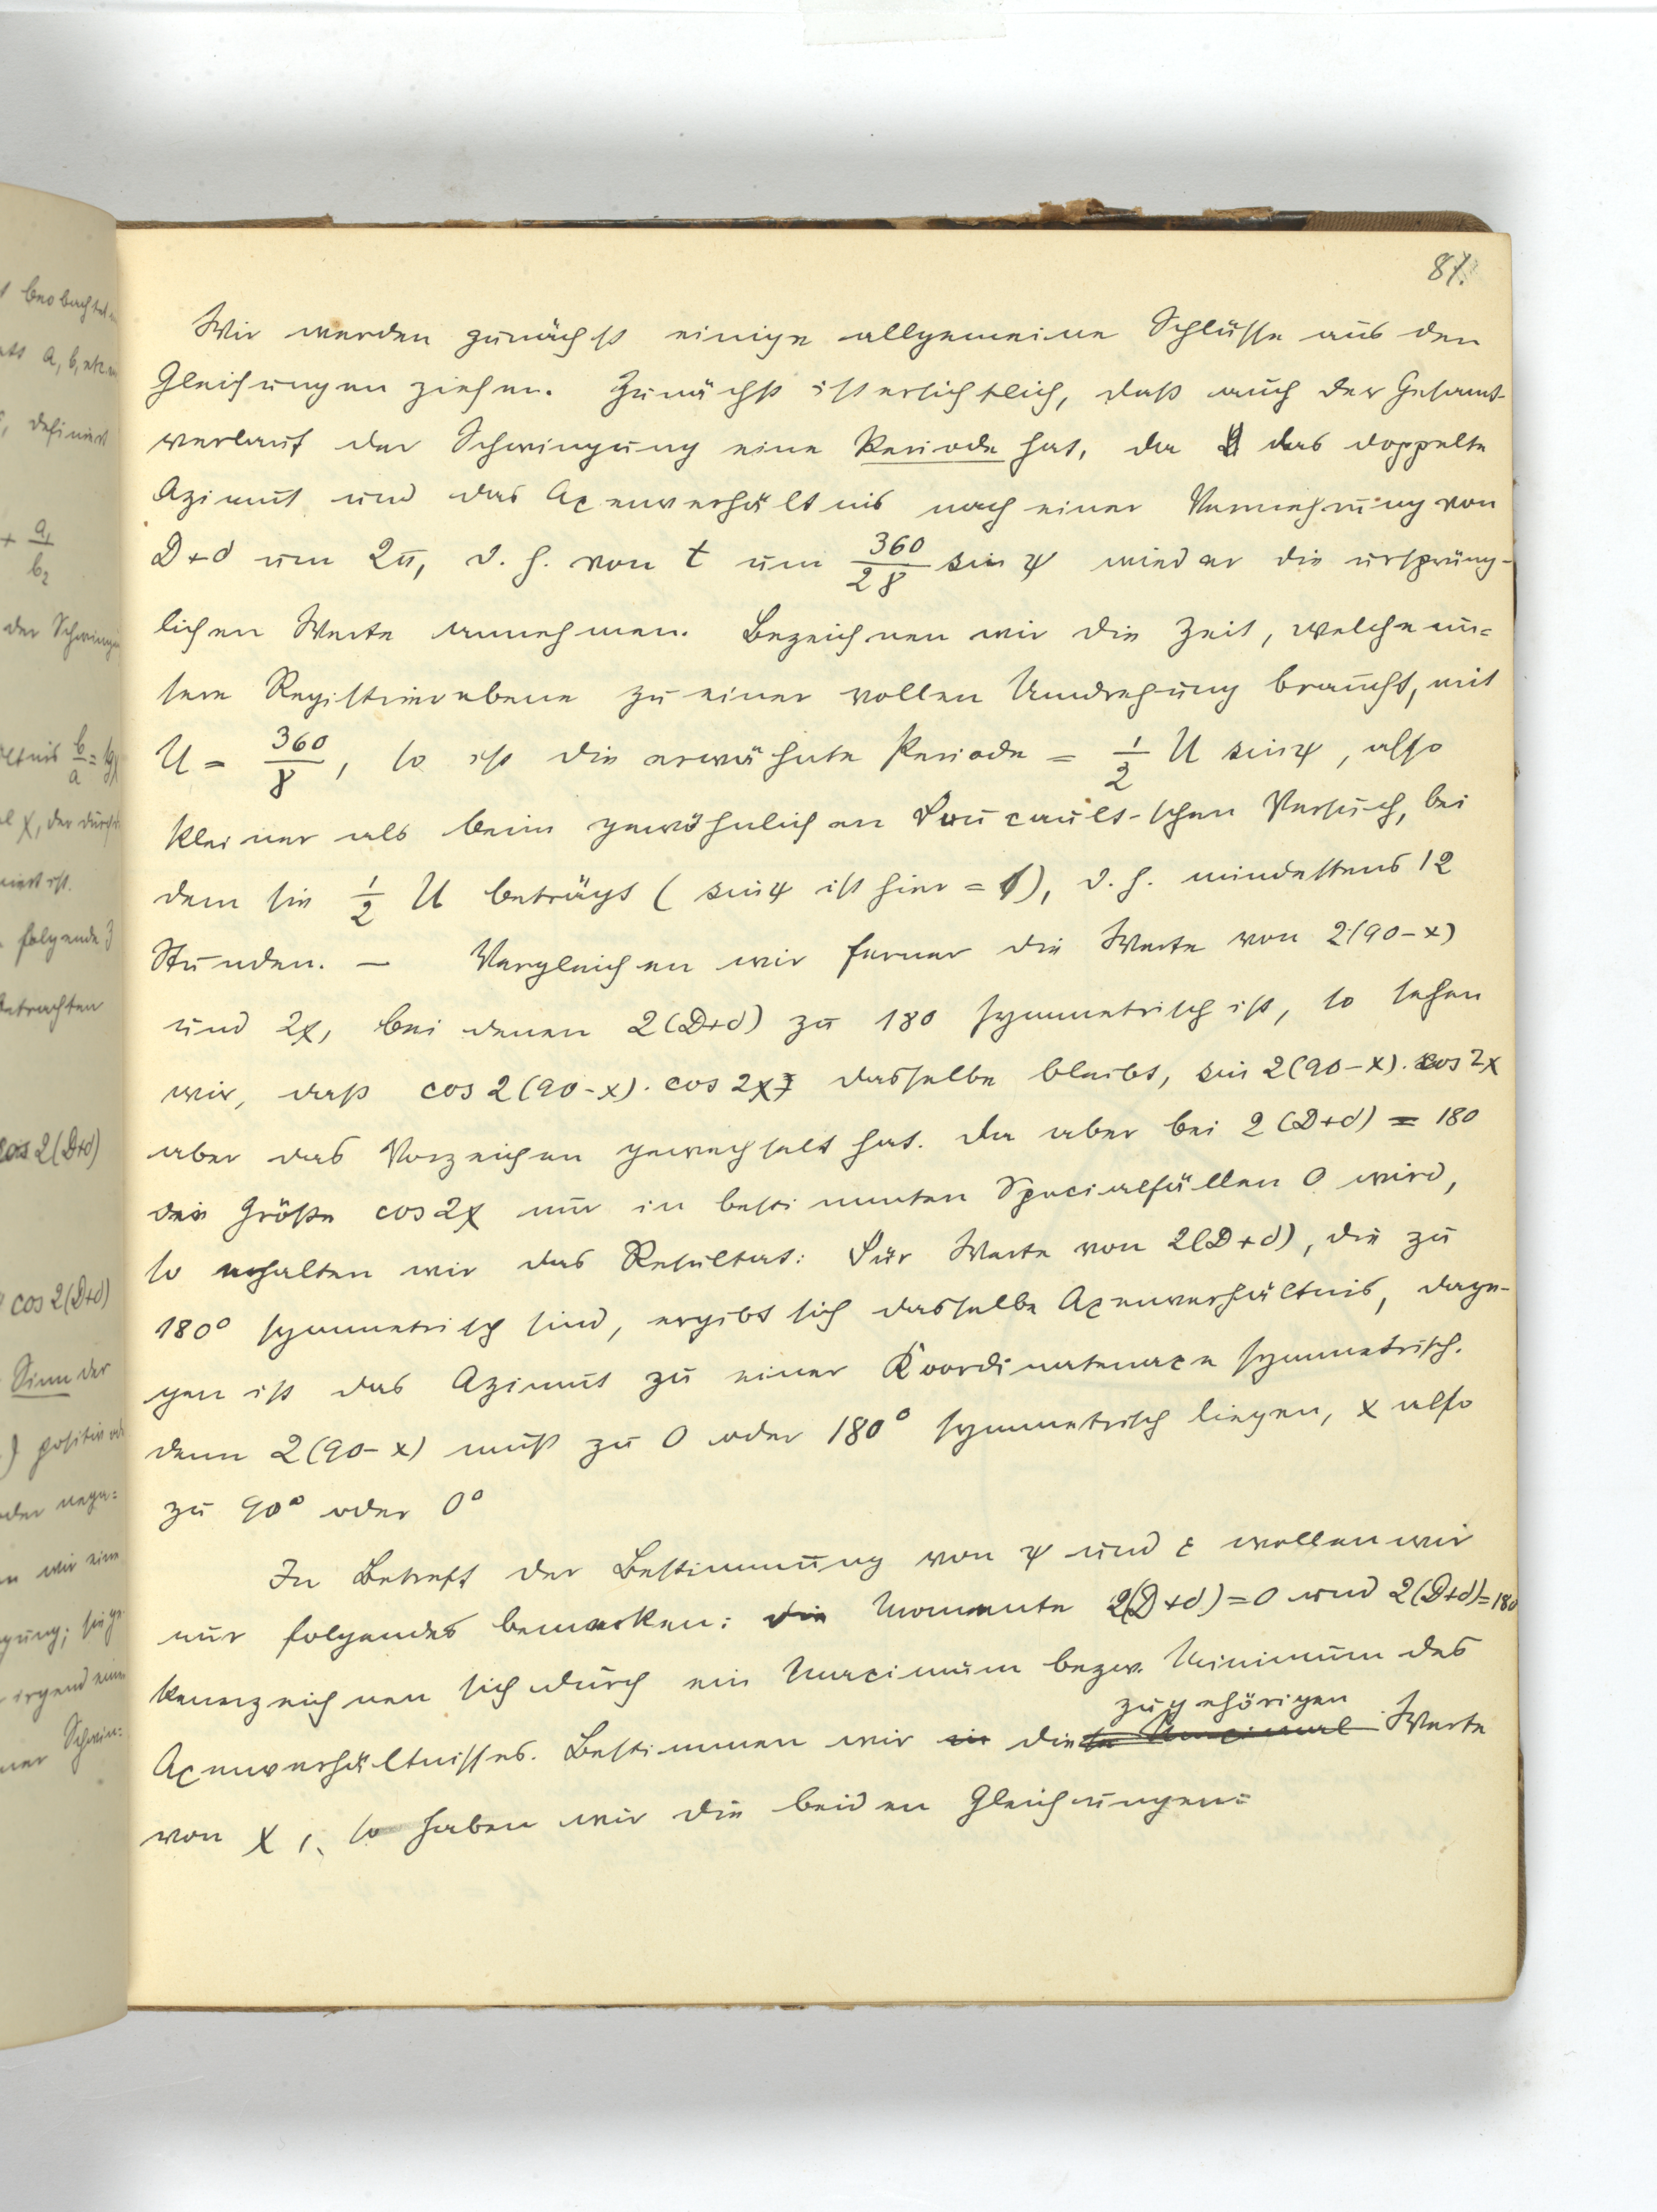 87.
Wir werden zunächst einige allgemeine Schlüsse aus den
Gleichungen ziehen. Zunächst ist ersichtlich, daß auch der Gesamt-
verlauf der Schwingung eine Periode hat, da das doppelte
Azimut und das Axenverhältnis nach einer Vermehrung von
D+d um 2π, d. h. von t um 360/2γ sin ψ wieder die ursprüng-
lichen Werte annehmen. Bezeichnen wir die Zeit, welche un=
sere Registrierebene zu einer vollen Umdrehung braucht, mit
U = 360/γ, so ist die erwähnte Periode = 1/2 U sin ψ, also
kleiner als beim gewöhnlichen Foucault-schen Versuch, bei
dem sie 1/2 U beträgt (sin ψ ist hier = 1), d. h. mindestens 12
Stunden. — Vergleichen wir ferner die Werte von 2(90-x)
und 2χ, bei denen 2(D+d) zu 180 symmetrisch ist, so sehen
wir, daß cos 2(90-x). cos 2χ dasselbe bleibt, sin 2(90-x). cos 2χ
aber das Vorzeichen gewechselt hat. Da aber bei 2(D+d) = 180
die Größe cos 2χ nur in bestimmten Specialfällen 0 wird,
so erhalten wir das Resultat: Für Werte von 2(D+d), die zu
180° symmetrisch sind, ergibt sich dasselbe Axenverhältnis, dage-
gen ist das Azimut zu einer Koordinatenaxe symmetrisch.
denn 2(90-x) muß zu 0 oder 180° symmetrisch liegen, x also
zu 90° oder 0°
In Betreff der Bestimmung von ψ und ε wollen wir
nur folgendes bemerken: die Momente 2(D+d)=0 und 2(D+d)=180
kennzeichnen sich durch ein Maximum bezw. Minimum des
zugehörigen
Axenverhältnisses. Bestimmen wir die Werte
von χ, so haben wir die beiden Gleichungen:
t beobachtet
definiert
+ a₁/b₂
der Schwingu
b/a = tg
folgende
betrachten
cos 2(D+d)
cos 2(D+d)
Sinn der
positiv od
oder nega=
n wir eine
irgend eine
Schwin: